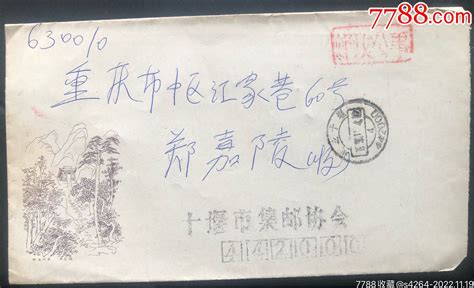 7788.com
630010
重庆市中区江家巷60号
郑嘉陵 收
十堰市集邮协会
442000
7788收藏@s4264-2022.11.19